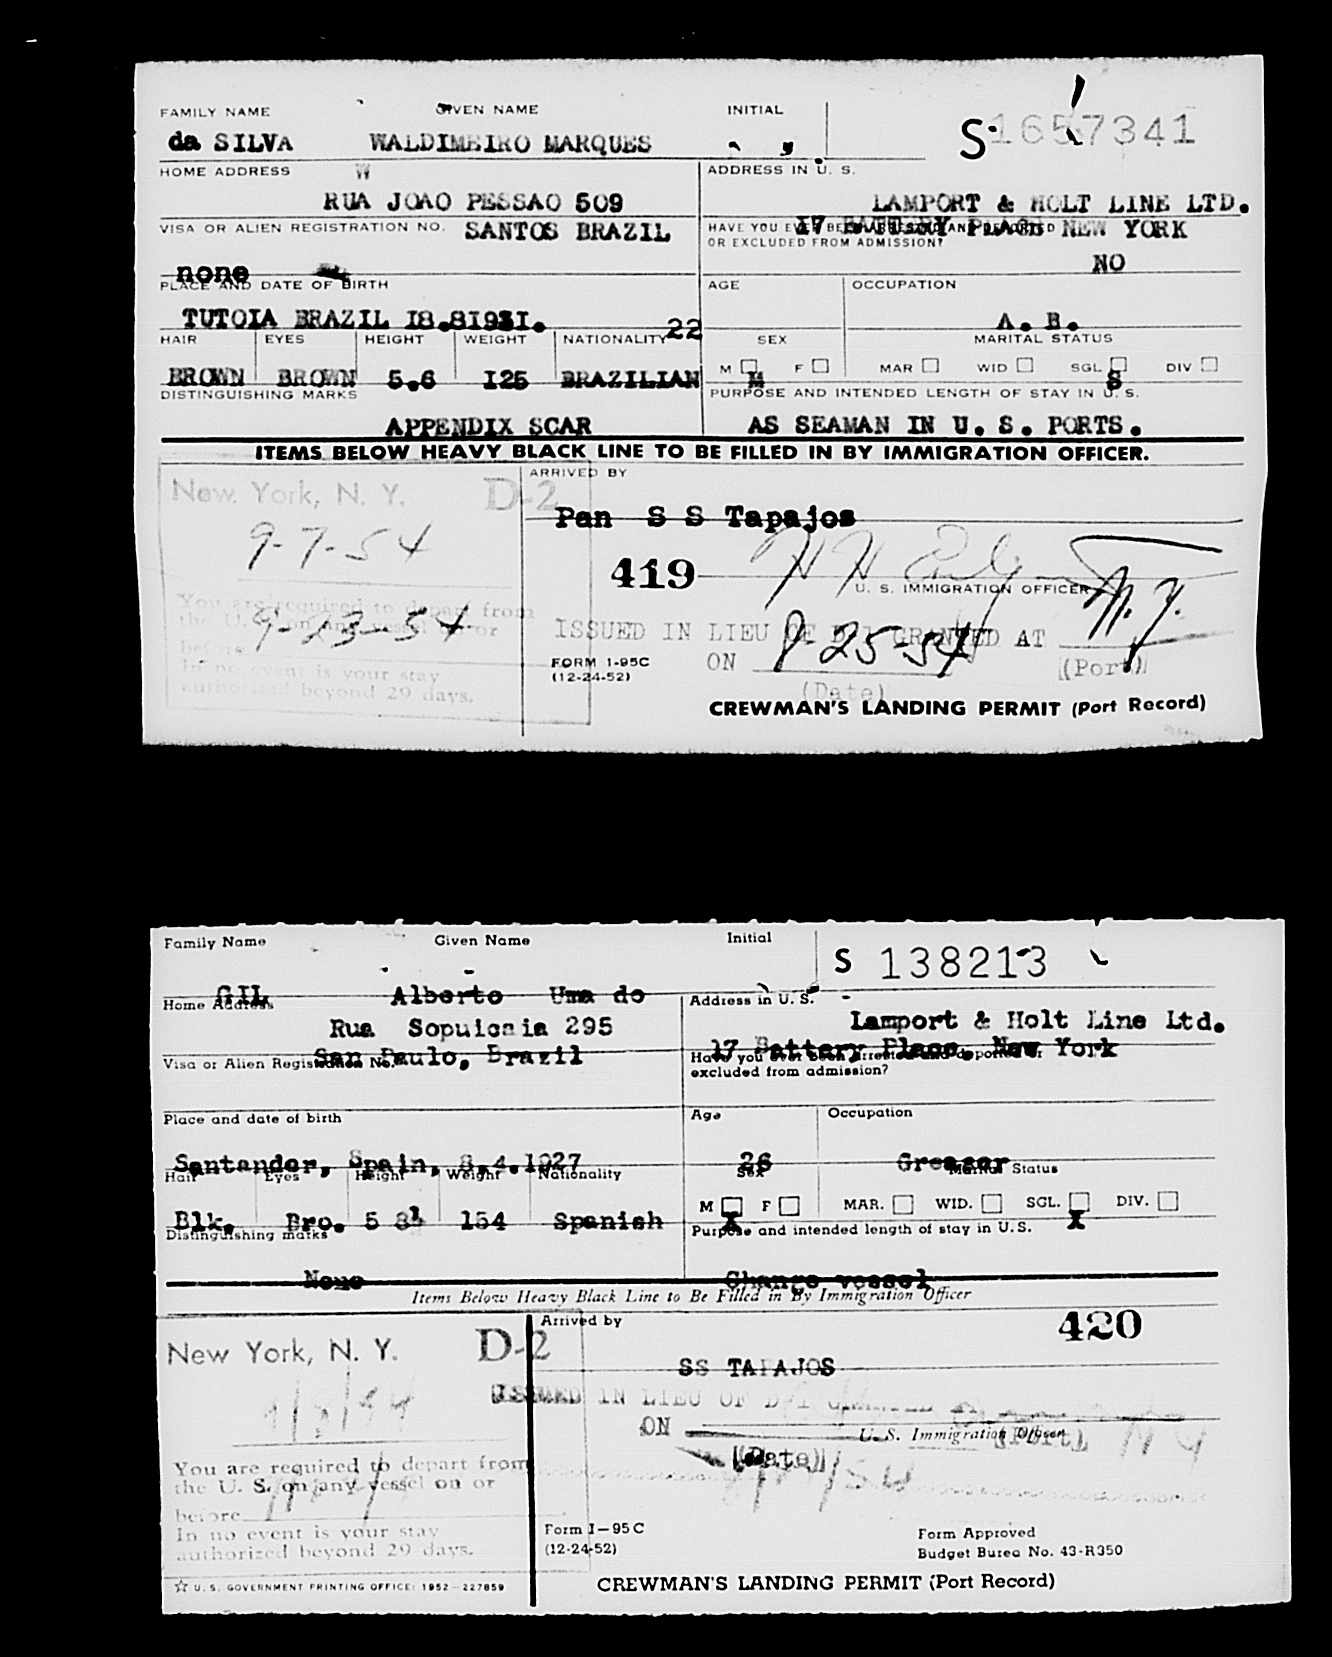 FAMILY NAME GIVEN NAME INITIAL
da SILVA WALDIMEIRO MARQUES S. 1657341
HOME ADDRESS W ADDRESS IN U. S.
RUA JOAO PESSAO 509 LAMPORT & HOLT LINE LTD.
VISA OR ALIEN REGISTRATION NO. SANTOS BRAZIL HAVE YOU EVER BEEN ARRESTED AND DEPORTED 17 BATTERY PLACE NEW YORK
OR EXCLUDED FROM ADMISSION?
none NO
PLACE AND DATE OF BIRTH AGE OCCUPATION
TUTOIA BRAZIL I8.8I93I. 22 A. B.
HAIR EYES HEIGHT WEIGHT NATIONALITY SEX MARITAL STATUS
M F MAR WID SGL DIV
BROWN BROWN 5.6 I25 BRAZILIAN M S
DISTINGUISHING MARKS PURPOSE AND INTENDED LENGTH OF STAY IN U. S.
APPENDIX SCAR AS SEAMAN IN U. S. PORTS.
ITEMS BELOW HEAVY BLACK LINE TO BE FILLED IN BY IMMIGRATION OFFICER.
ARRIVED BY
New York, N. Y. D-2
Pan S S Tapajos
9-7-54
419
U. S. IMMIGRATION OFFICER
You are required to depart from
the U. S. on any vessel on or
9-23-54
before
In no event is your stay
authorized beyond 29 days.
ISSUED IN LIEU OF D-1 GRANTED AT N.Y.
FORM I-95C ON 8-25-54 (Port)
(12-24-52)
(Date)
CREWMAN'S LANDING PERMIT (Port Record)
Family Name Given Name Initial
S 138213
GIL Alberto Uma do
Home Address Address in U. S.
Rua Sopuicaia 295 Lamport & Holt Line Ltd.
San Paulo, Brazil 17 Battery Place, New York
Visa or Alien Registration No. Have you ever been arrested and deported or
excluded from admission?
Place and date of birth Age Occupation
Santander, Spain, 8.4.1927 26 Greaser
Hair Eyes Height Weight Nationality Sex Marital Status
M F MAR. WID. SGL. DIV.
Blk. Bro. 5 8½ 154 Spanish X X
Distinguishing marks Purpose and intended length of stay in U.S.
None Change vessel
Items Below Heavy Black Line to Be Filled in By Immigration Officer
Arrived by 420
New York, N. Y. D-2
SS TAPAJOS
ISSUED IN LIEU OF D-1 GRANTED
ON
U. S. Immigration Officer (Port) N Y
(Date)
You are required to depart from
the U. S. on any vessel on or
before
In no event is your stay
authorized beyond 29 days.
Form I-95C Form Approved
(12-24-52) Budget Bureo No. 43-R350
☆ U. S. GOVERNMENT PRINTING OFFICE: 1952-227859
CREWMAN'S LANDING PERMIT (Port Record)